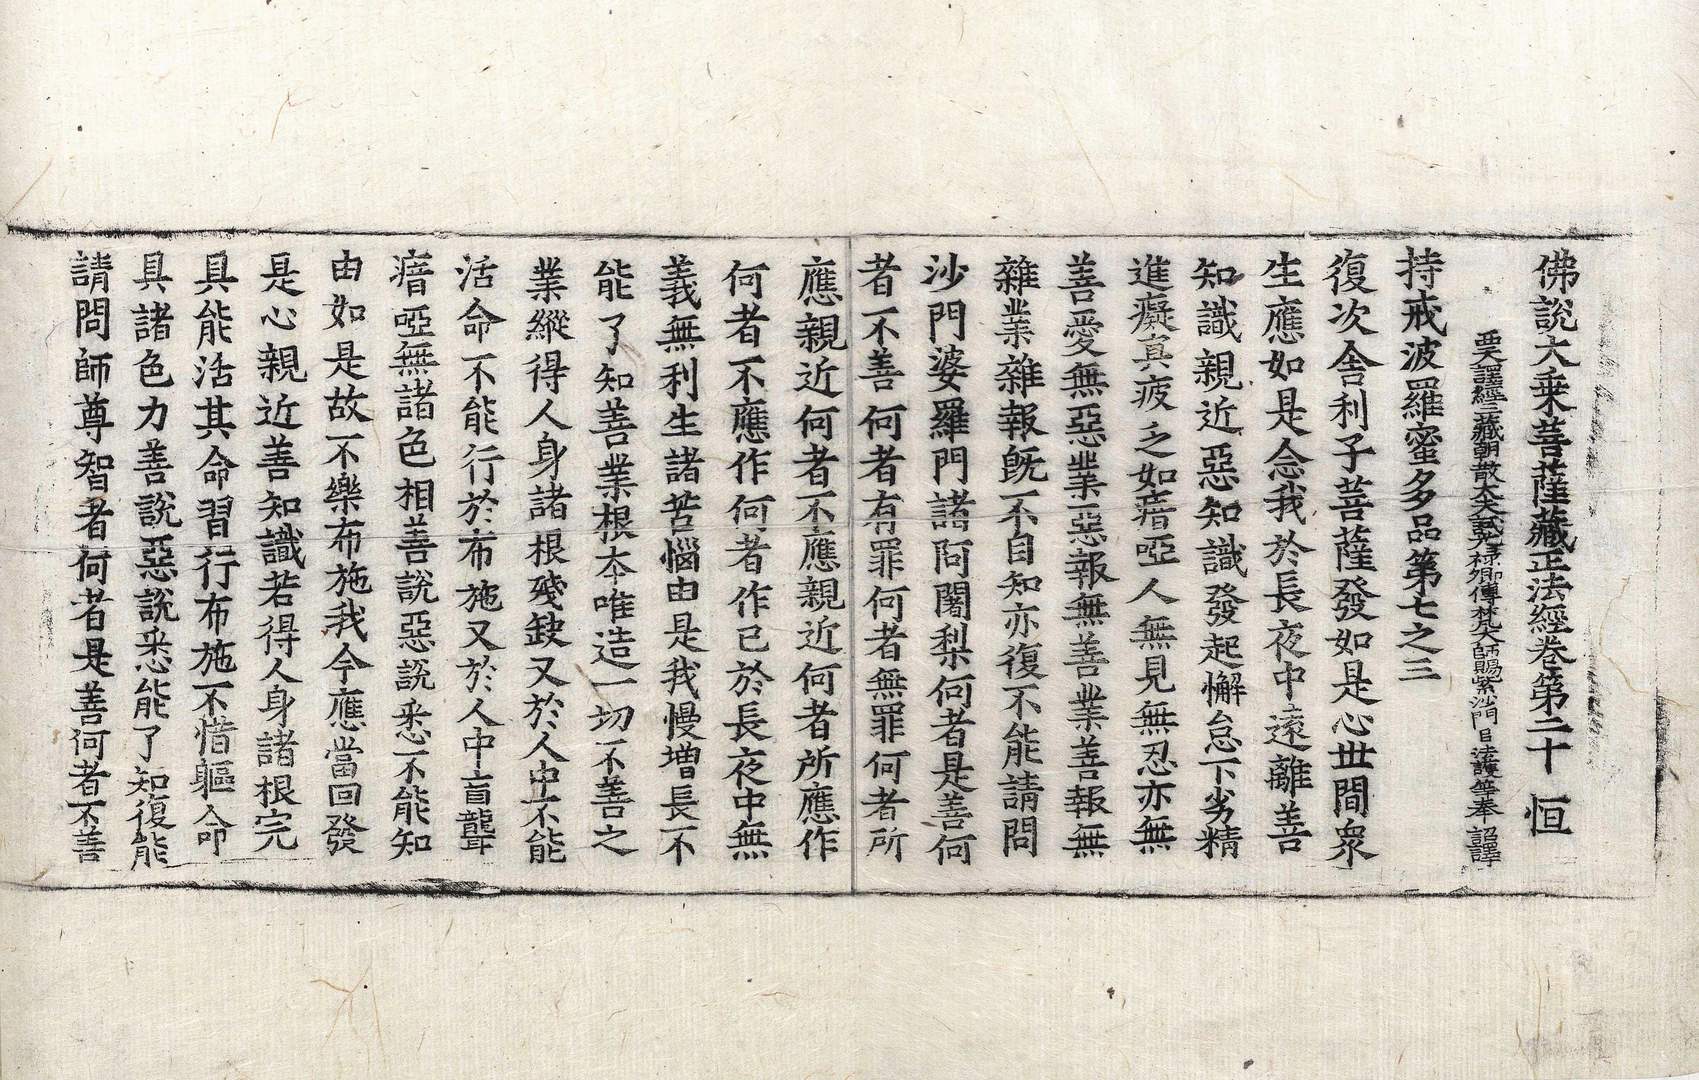 佛說大乘菩薩藏正法經卷第二十 恒
西天譯經三藏朝散大夫試光祿卿傳梵大師賜紫沙門臣法護等奉 詔譯
持戒波羅蜜多品第七之三
復次舍利子菩薩發如是心世間衆
生應如是念我於長夜中遠離善
知識親近惡知識發起懈怠下劣精
進癡真疲乏如瘖啞人無見無忍亦無
善愛無惡業惡報無善業善報無
雜業雜報旣不自知亦復不能請問
沙門婆羅門諸阿闍梨何者是善何
者不善何者有罪何者無罪何者所
應親近何者不應親近何者所應作
何者不應作何者作已於長夜中無
義無利生諸苦惱由是我慢增長不
能了知善業根本唯造一切不善之
業縱得人身諸根殘缺又於人中不能
活命不能行於布施又於人中盲聾
瘖啞無諸色相善說惡說悉不能知
由如是故不樂布施我今應當回發
是心親近善知識若得人身諸根完
具能活其命習行布施不惜軀命
具諸色力善說惡說悉能了知復能
請問師尊智者何者是善何者不善